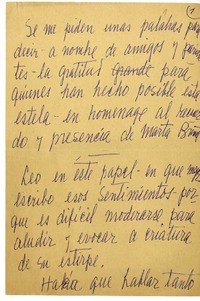 1
Se me piden unas palabras para
decir - a nombre de amigos y parien
tes - la gratitud grande para
quienes han hecho posible esta
estela - en homenaje al recuer
do y presencia de Marta Brunet
Leo en este papel - en que
escribo esos sentimientos por
que es difícil moderarse para
aludir y evocar a criatura
de su estirpe.
Habría que hablar tanto